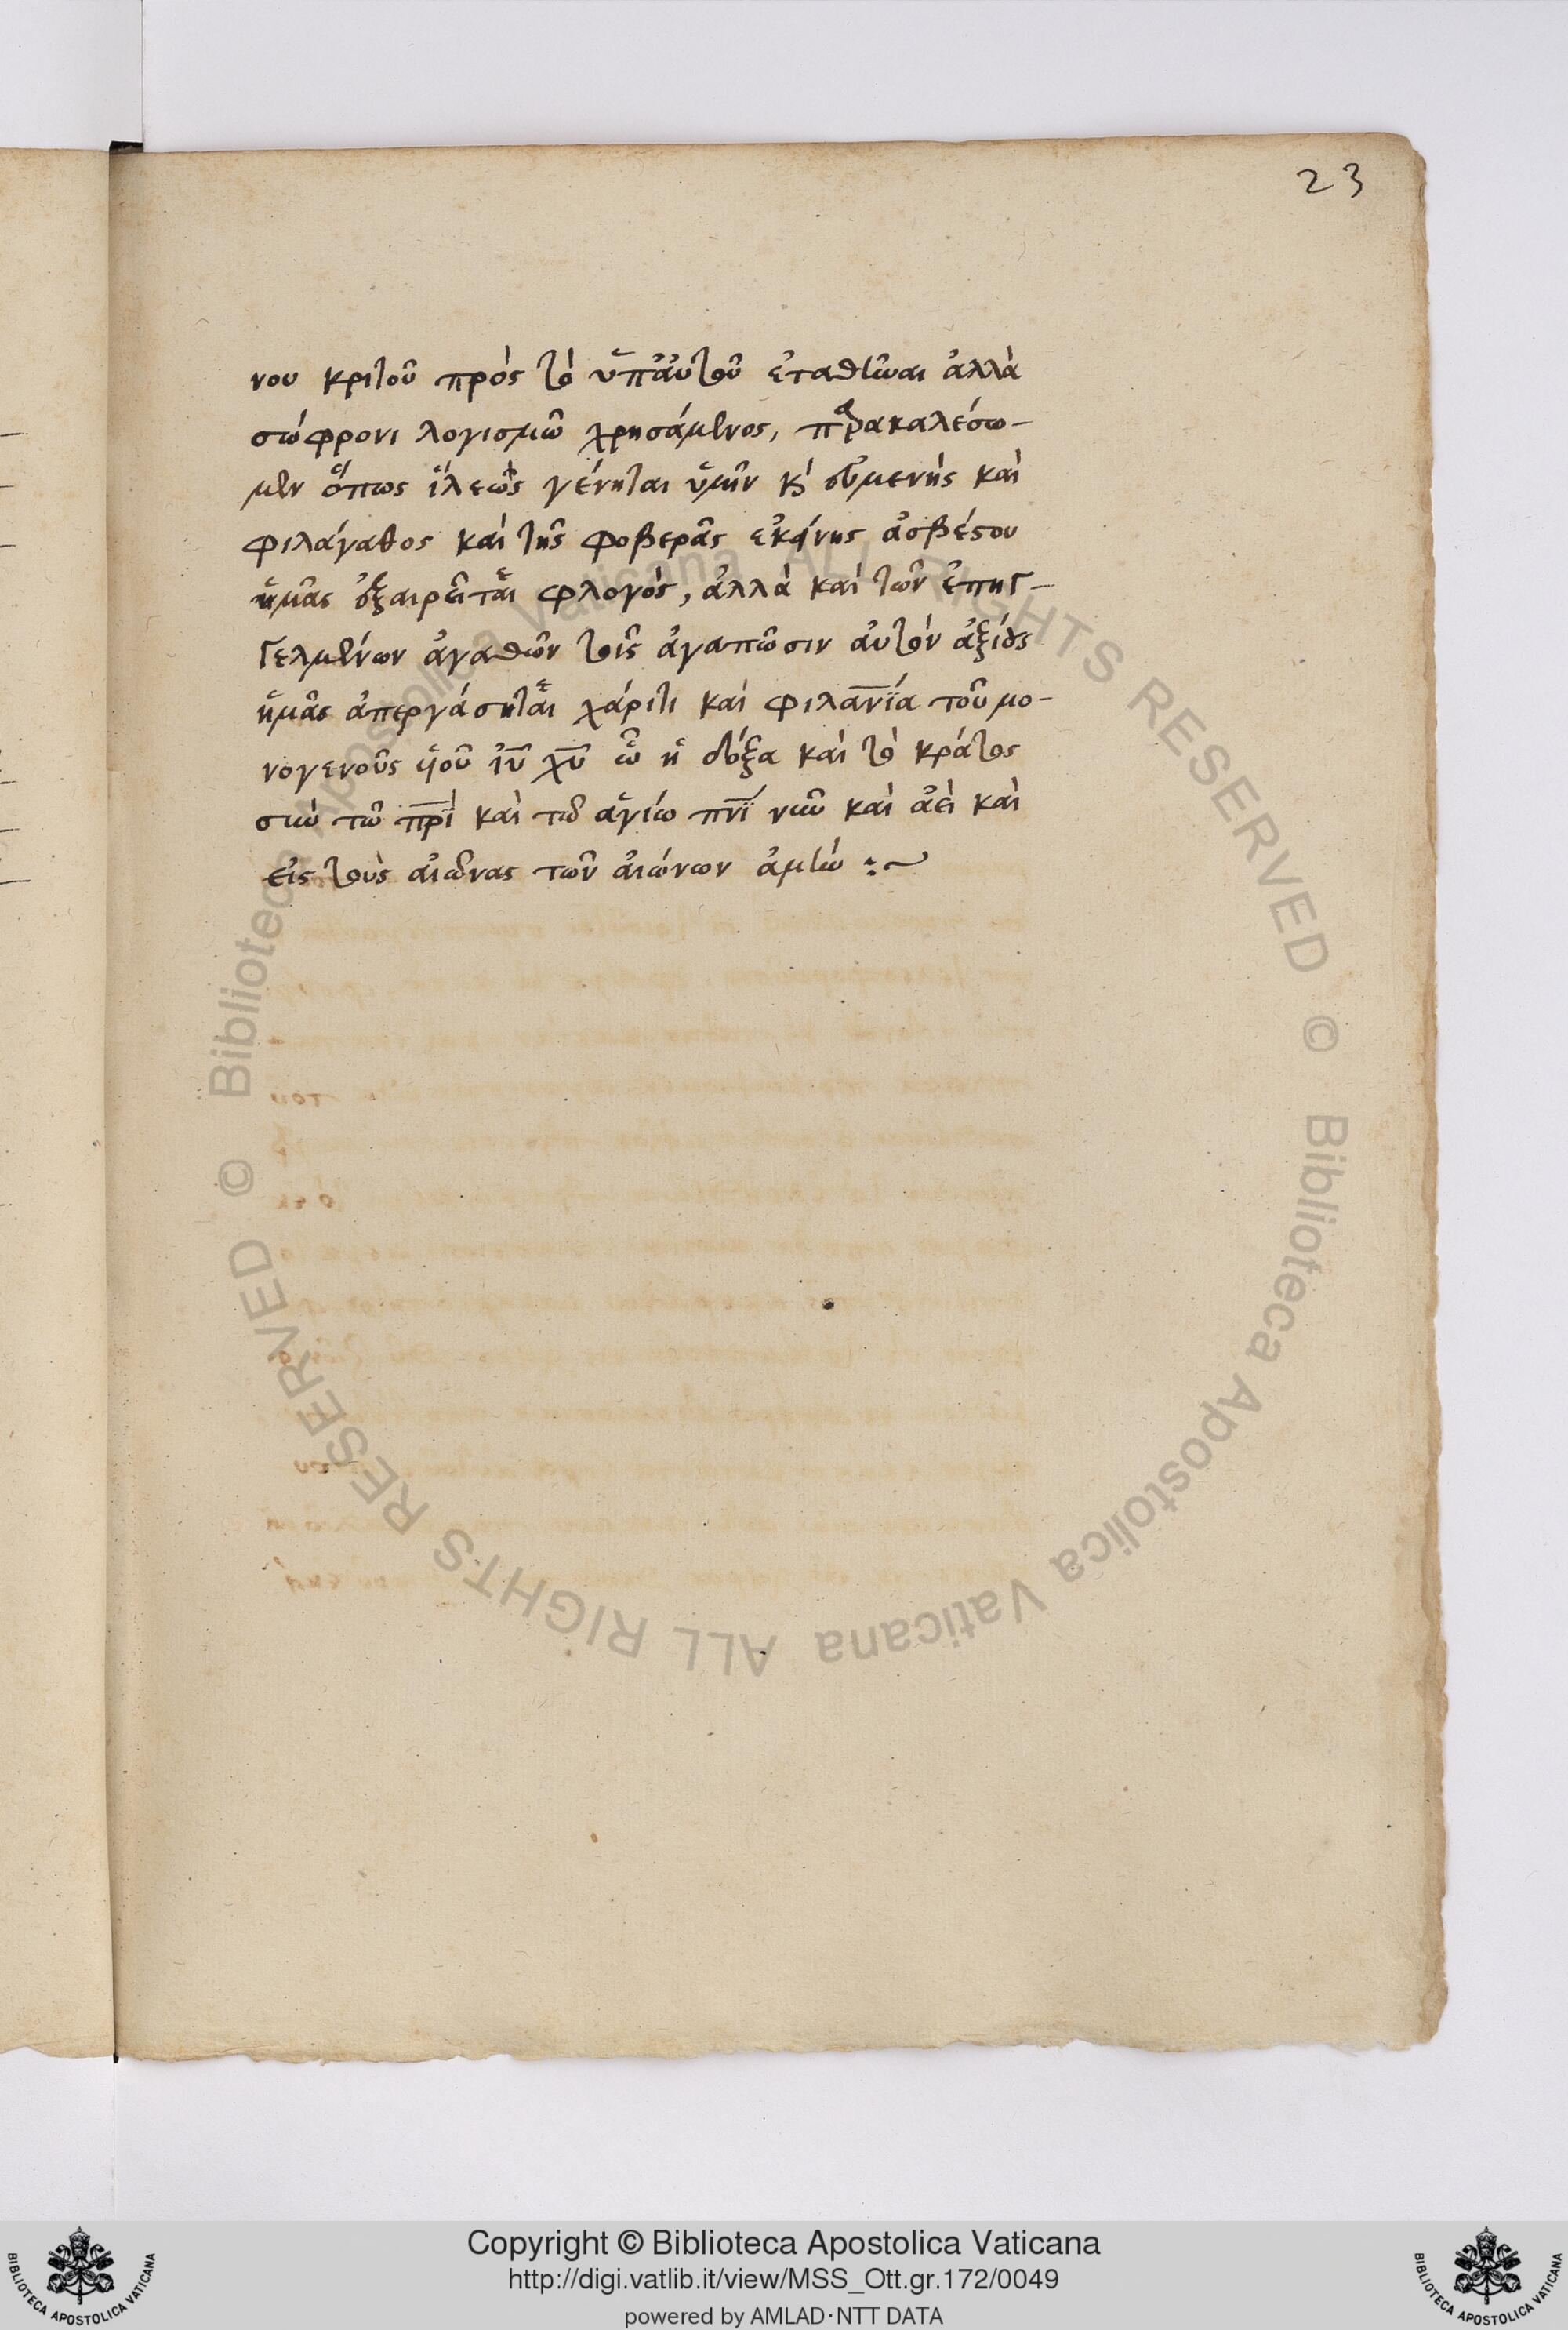 23
νου κριτοῦ πρὸς τὸ ὑπ' αὐτοῦ ἐταθῆναι ἀλλὰ
σώφρονι λογισμῶ χρησάμενος, παρακαλέσω-
μεν ὅπως ἵλεως γένηται ὑμῖν κὶ εὐμενὴς καὶ
φιλάγαθος καὶ τῆς φοβερᾶς ἐκείνης ἀσβέστου
ἡμᾶς ἐξαιρεῖται φλογὸς, ἀλλὰ καὶ τῶν ἐπηγ-
γελμένων ἀγαθῶν τοῖς ἀγαπῶσιν αὐτὸν ἀξίους
ἡμᾶς ἀπεργάσηται χάριτι καὶ φιλανΐα τοῦ μο-
νογενοῦς ὑιοῦ ιυ χυ ὧ ἡ δόξα καὶ τὸ κράτος
σὺν τῶ πρὶ καὶ τῶ ἁγίω πνϊ νῦν καὶ ἀεὶ καὶ
εἰς τοὺς αἰῶνας τῶν αἰώνων ἀμήν :~
© Biblioteca Apostolica Vaticana ALL RIGHTS RESERVED
© Biblioteca Apostolica Vaticana ALL RIGHTS RESERVED
BIBLIOTECA APOSTOLICA VATICANA
Copyright © Biblioteca Apostolica Vaticana
http://digi.vatlib.it/view/MSS_Ott.gr.172/0049
powered by AMLAD·NTT DATA
BIBLIOTECA APOSTOLICA VATICANA